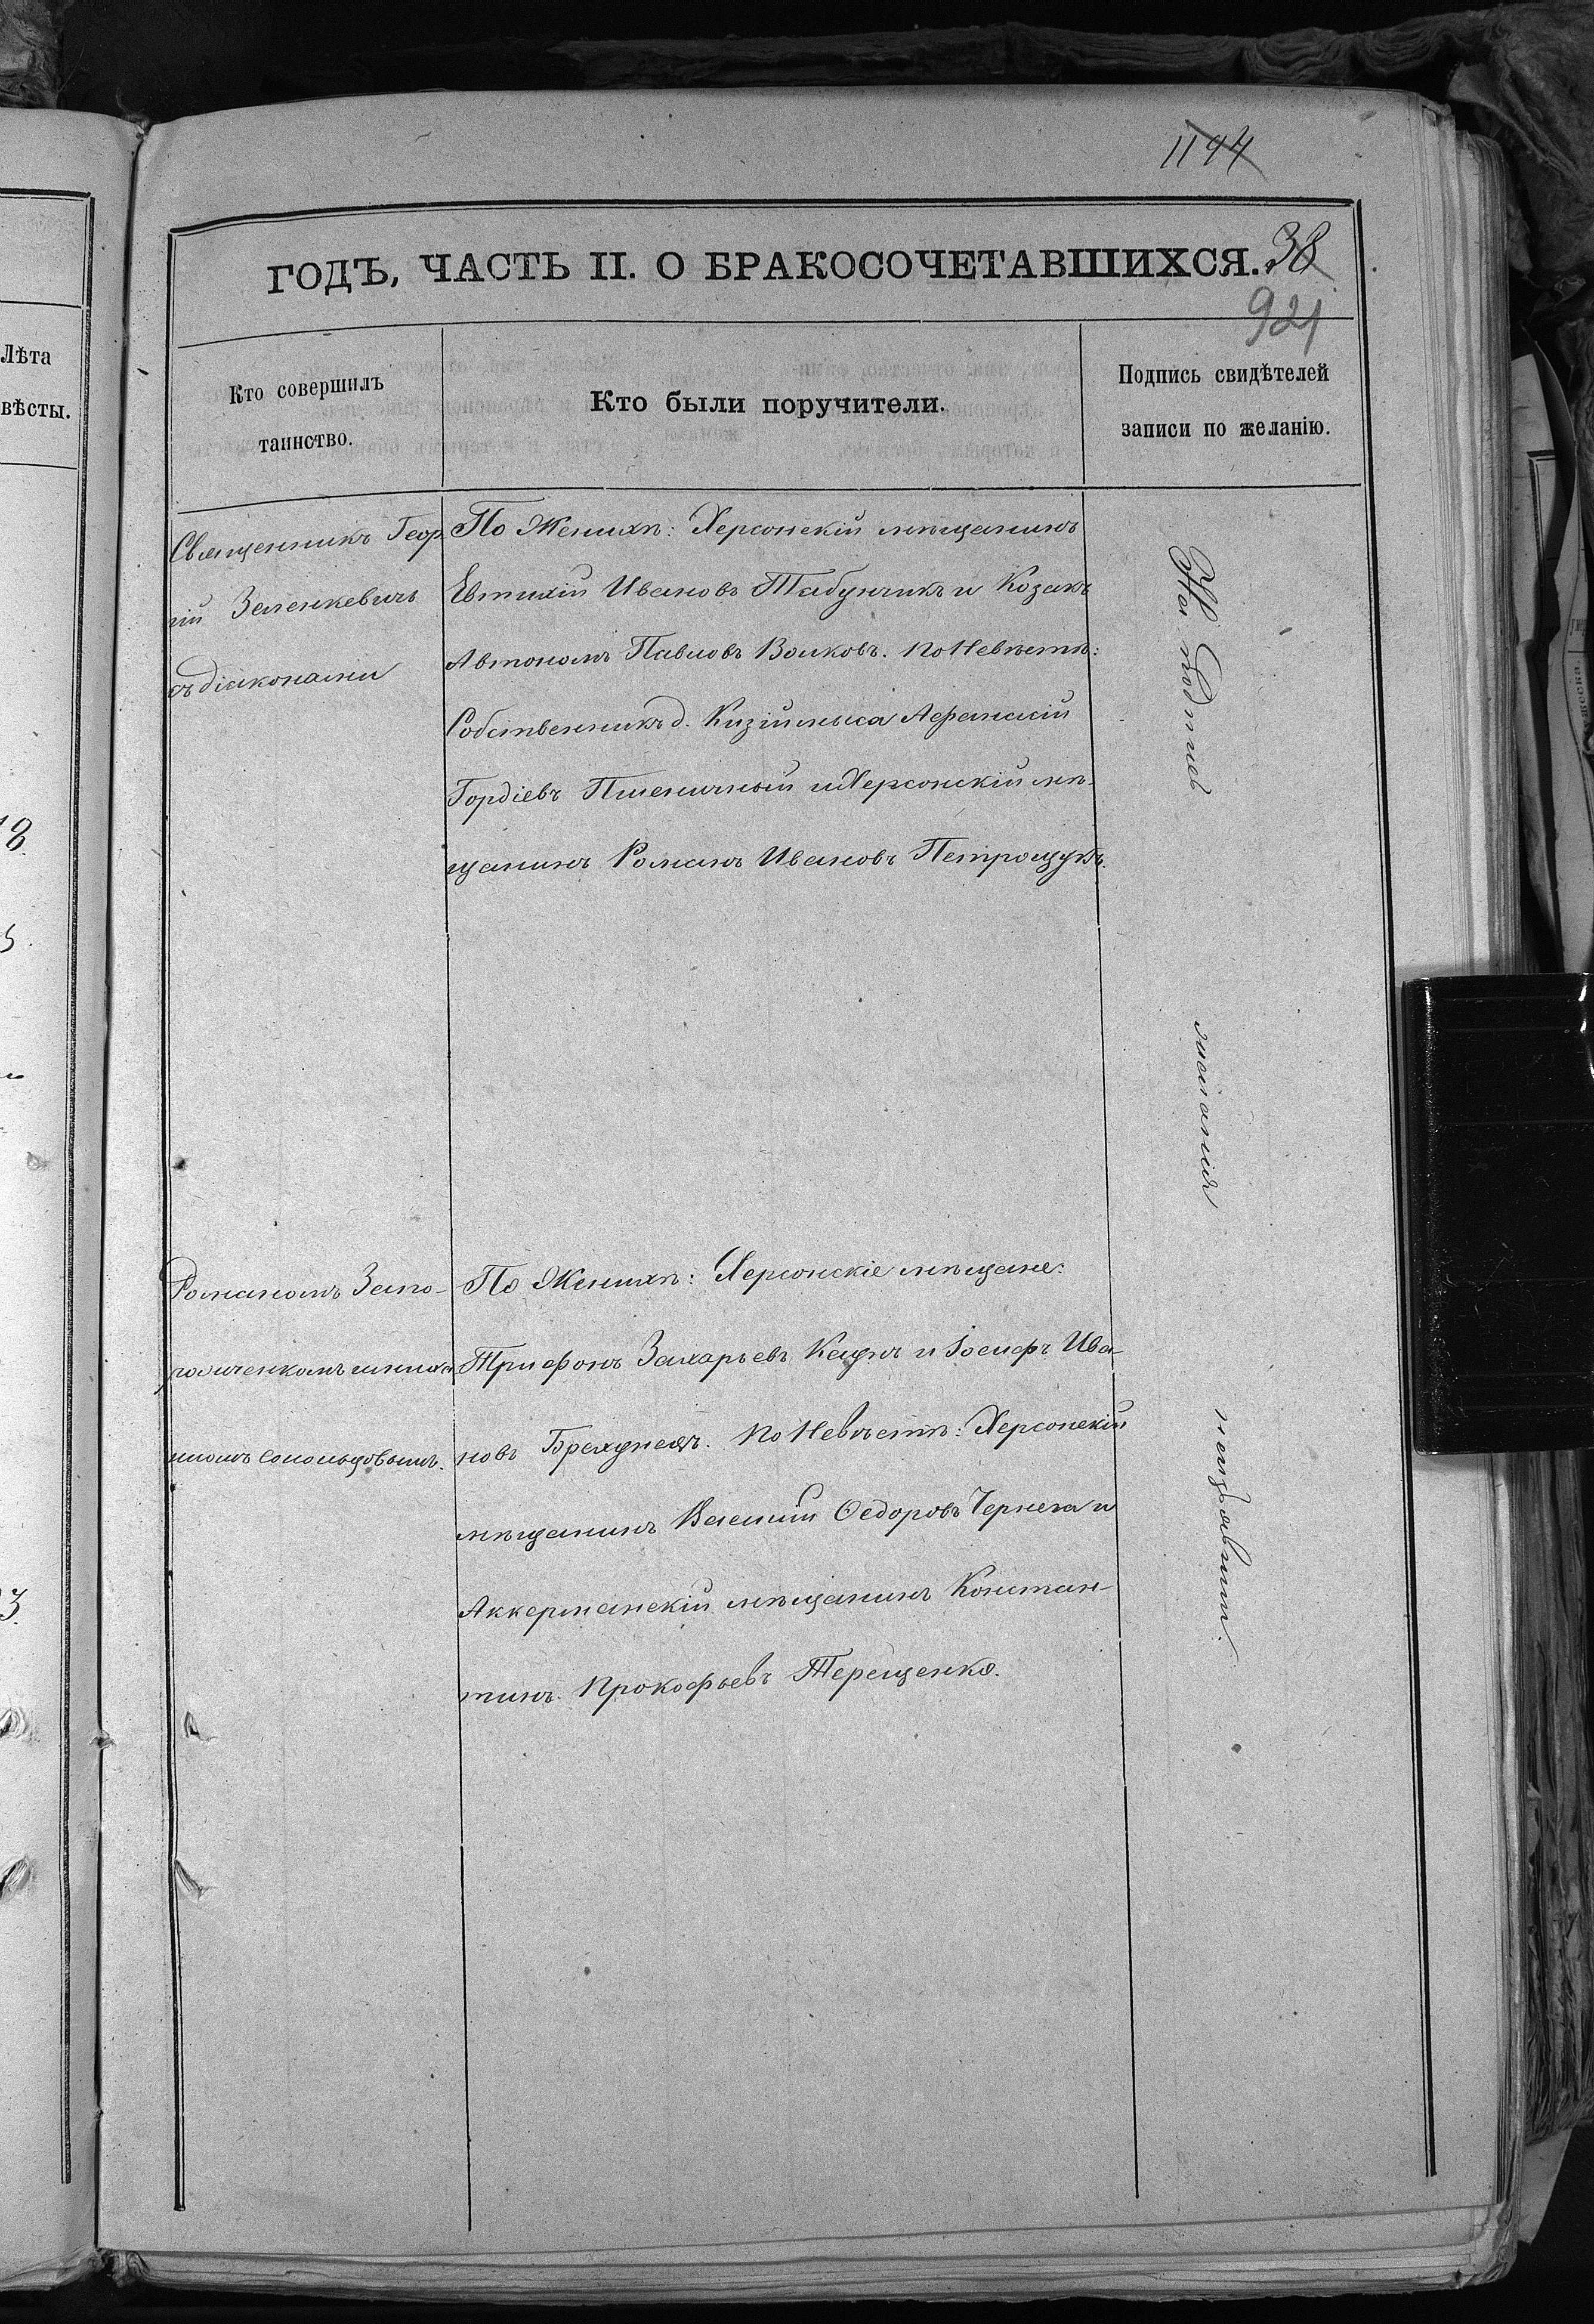 1194
ГОДЪ, ЧАСТЬ II. О БРАКОСОЧЕТАВШИХСЯ.
38
921
Лѣта
вѣсты.
Кто совершилъ
таинство.
Кто были поручители.
Подпись свидѣтелей
записи по желанію.
Священникъ Геор
гій Зеленкевичъ
съ діаконами
По Женихѣ: Херсонскій мѣщанинъ
Евтихій Ивановъ Табунчикъ и Козакъ
Автономъ Павловъ Волковъ. По Невѣстѣ:
Собственникъ д. Кизій мыса Афанасій
Гордіевъ Пшеничный и Херсонскій мѣ-
щанинъ Романъ Ивановъ Петрощукъ.
Романомъ Запо-
По Женихѣ: Херсонскіе мѣщане:
Трифонъ Захарьевъ и Іосифъ Ива-
новъ По Невѣстѣ: Херсонскій
мѣщанинъ Василій Ѳедоровъ Чернега и
Аккерманскій мѣщанинъ Констан-
тинъ Прокофьевъ Терещенко.
желанія
неизъявили.